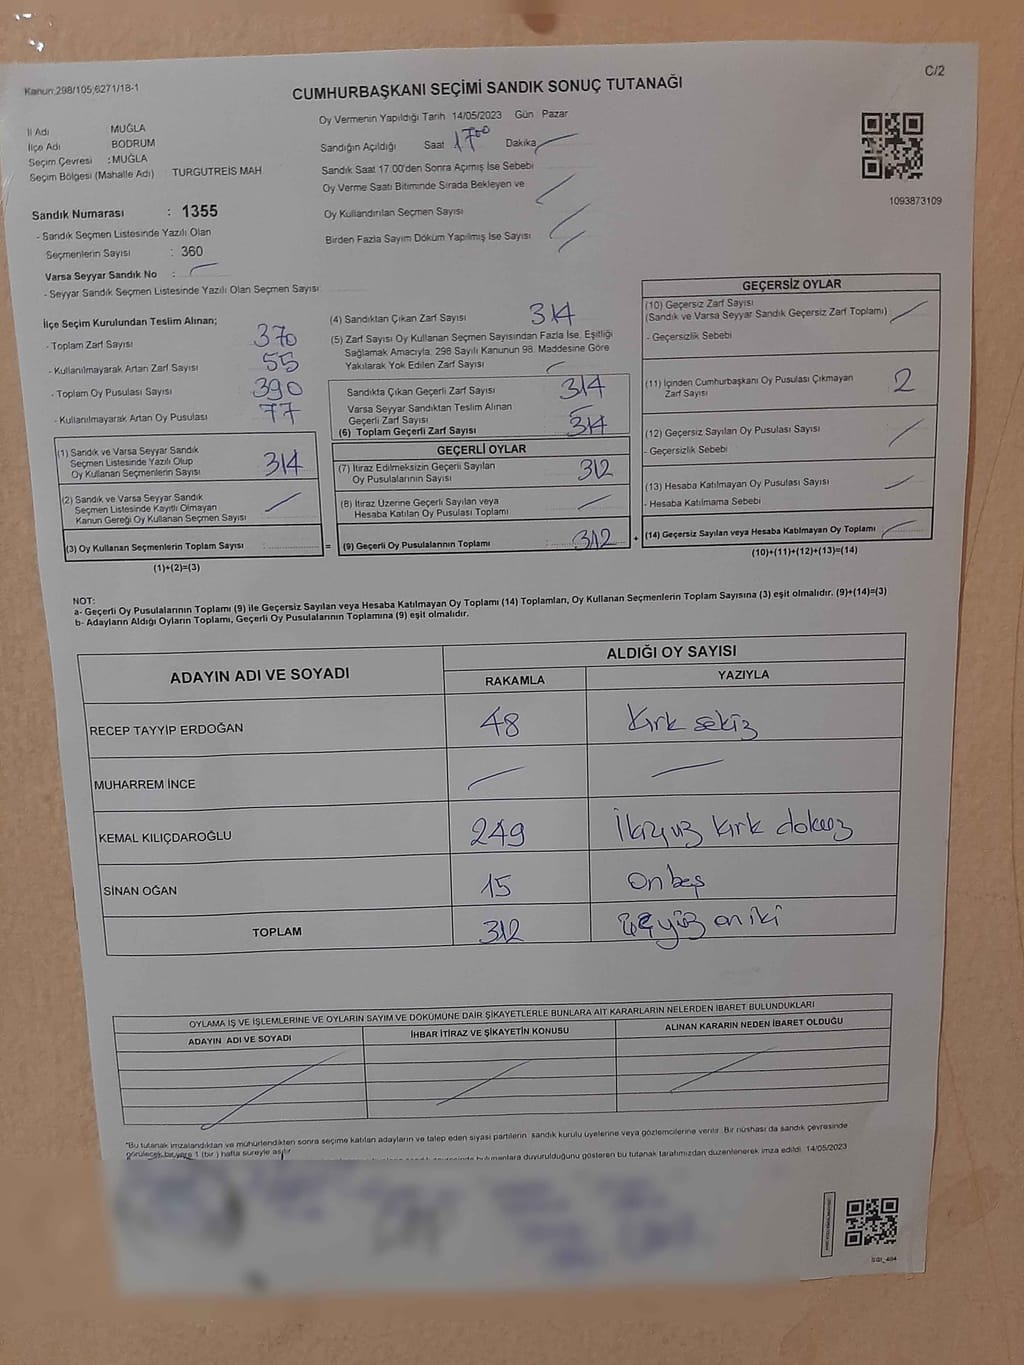 Kanun:298/105,6271/18-1
C/2
CUMHURBAŞKANI SEÇİMİ SANDIK SONUÇ TUTANAĞI
İl Adı MUĞLA
İlçe Adı BODRUM
Seçim Çevresi : MUĞLA
Seçim Bölgesi (Mahalle Adı) TURGUTREİS MAH
Sandık Numarası : 1355
- Sandık Seçmen Listesinde Yazılı Olan
Seçmenlerin Sayısı : 360
Varsa Seyyar Sandık No :
- Seyyar Sandık Seçmen Listesinde Yazılı Olan Seçmen Sayısı:
Oy Vermenin Yapıldığı Tarih 14/05/2023 Gün Pazar
Sandığın Açıldığı Saat 17:00 Dakika
Sandık Saat 17:00'den Sonra Açımış İse Sebebi
Oy Verme Saati Bitiminde Sırada Bekleyen ve
Oy Kullandırılan Seçmen Sayısı
Birden Fazla Sayım Döküm Yapılmış İse Sayısı
1093873109
İlçe Seçim Kurulundan Teslim Alınan;
- Toplam Zarf Sayısı 370
- Kullanılmayarak Artan Zarf Sayısı 55
- Toplam Oy Pusulası Sayısı 390
- Kullanılmayarak Artan Oy Pusulası 77
(1) Sandık ve Varsa Seyyar Sandık
Seçmen Listesinde Yazılı Olup
Oy Kullanan Seçmenlerin Sayısı 314
(2) Sandık ve Varsa Seyyar Sandık
Seçmen Listesinde Kayıtlı Olmayan
Kanun Gereği Oy Kullanan Seçmen Sayısı
(3) Oy Kullanan Seçmenlerin Toplam Sayısı =
(1)+(2)=(3)
(4) Sandıktan Çıkan Zarf Sayısı 314
(5) Zarf Sayısı Oy Kullanan Seçmen Sayısından Fazla İse, Eşitliği
Sağlamak Amacıyla, 298 Sayılı Kanunun 98. Maddesine Göre
Yakılarak Yok Edilen Zarf Sayısı
Sandıkta Çıkan Geçerli Zarf Sayısı 314
Varsa Seyyar Sandıktan Teslim Alınan
Geçerli Zarf Sayısı
(6) Toplam Geçerli Zarf Sayısı 314
GEÇERLİ OYLAR
(7) İtiraz Edilmeksizin Geçerli Sayılan
Oy Pusulalarının Sayısı 312
(8) İtiraz Üzerine Geçerli Sayılan veya
Hesaba Katılan Oy Pusulası Toplamı
(9) Geçerli Oy Pusulalarının Toplamı 312 +
GEÇERSİZ OYLAR
(10) Geçersiz Zarf Sayısı
(Sandık ve Varsa Seyyar Sandık Geçersiz Zarf Toplamı)
- Geçersizlik Sebebi
(11) İçinden Cumhurbaşkanı Oy Pusulası Çıkmayan
Zarf Sayısı 2
(12) Geçersiz Sayılan Oy Pusulası Sayısı
- Geçersizlik Sebebi
(13) Hesaba Katılmayan Oy Pusulası Sayısı
- Hesaba Katılmama Sebebi
(14) Geçersiz Sayılan veya Hesaba Katılmayan Oy Toplamı
(10)+(11)+(12)+(13)=(14)
NOT:
a- Geçerli Oy Pusulalarının Toplamı (9) ile Geçersiz Sayılan veya Hesaba Katılmayan Oy Toplamı (14) Toplamları, Oy Kullanan Seçmenlerin Toplam Sayısına (3) eşit olmalıdır. (9)+(14)=(3)
b- Adayların Aldığı Oyların Toplamı, Geçerli Oy Pusulalarının Toplamına (9) eşit olmalıdır.
ADAYIN ADI VE SOYADI
ALDIĞI OY SAYISI
RAKAMLA YAZIYLA
RECEP TAYYİP ERDOĞAN 48 Kırk sekiz
MUHARREM İNCE
KEMAL KILIÇDAROĞLU 249 İkiyüz kırk dokuz
SİNAN OĞAN 15 Onbeş
TOPLAM 312 üçyüz oniki
OYLAMA İŞ VE İŞLEMLERİNE VE OYLARIN SAYIM VE DÖKÜMÜNE DAİR ŞİKAYETLERLE BUNLARA AİT KARARLARIN NELERDEN İBARET BULUNDUKLARI
ADAYIN ADI VE SOYADI İHBAR İTİRAZ VE ŞİKAYETİN KONUSU ALINAN KARARIN NEDEN İBARET OLDUĞU
*Bu tutanak imzalandıktan ve mühürlendikten sonra seçime katılan adayların ve talep eden siyasi partilerin sandık kurulu üyelerine veya gözlemcilerine verilir. Bir nüshası da sandık çevresinde
görülecek bir yere 1 (bir) hafta süreyle asılır.
bulunanlara duyurulduğunu gösteren bu tutanak tarafımızdan düzenlenerek imza edildi. 14/05/2023